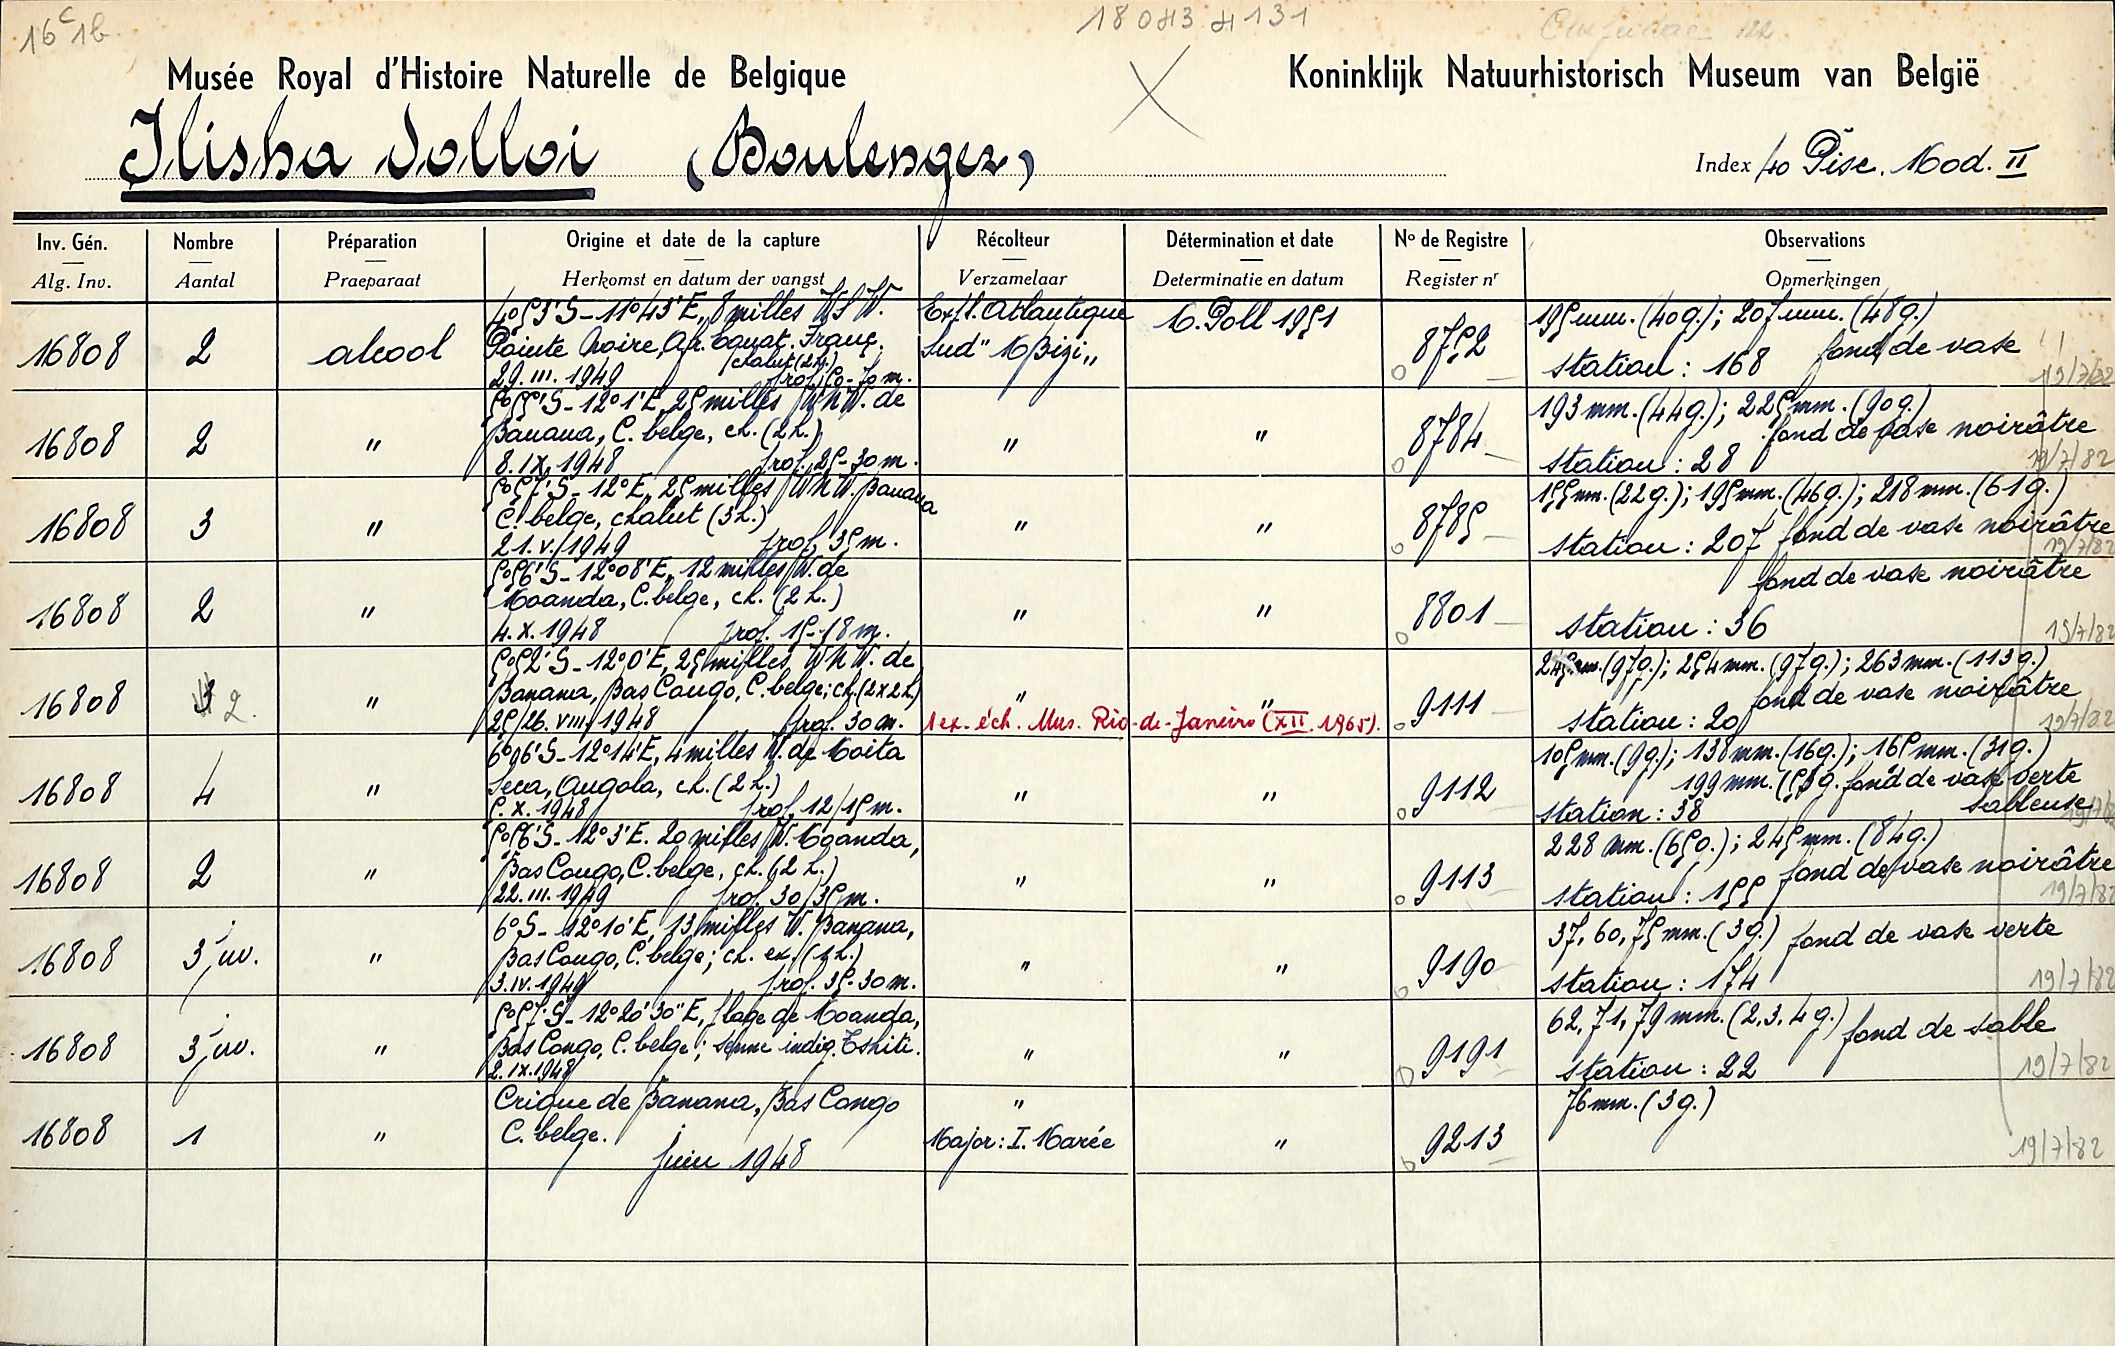 16 c 1b.
18043 H 131
Musée Royal d'Histoire Naturelle de Belgique
Koninklijk Natuurhistorisch Museum van België
Ilisha dolloi (Boulenger)
Index 40 Pisc. Mod. II
Inv. Gén. Nombre Préparation Origine et date de la capture Récolteur Détermination et date No de Registre Observations
Alg. Inv. Aantal Praeparaat Herkomst en datum der vangst Verzamelaar Determinatie en datum Register nr Opmerkingen
4°53'S - 11°43'E, 8 milles WSW. Exp. Atlantique M. Poll 1951 195 mm. (40g.); 207 mm. (48g.)
16808 2 alcool Pointe Noire, Afr. équat. Franç. Sud "M'Bizi" 8752 station: 168 fond de vase
29.III.1949 chalut (2h.) prof. 60-70 m. 19/7/82
5°55'S - 12°1'E, 25 milles WNW. de 193 mm. (44g.); 225 mm. (90g.)
16808 2 " Banana, C. belge, ch. (2h.) " " 8784 fond de vase noirâtre
8.IX.1948 prof. 25-30 m. station: 28 19/7/82
5°57'S - 12°E, 25 milles WNW. Banana 155 mm. (22g.); 195 mm. (46g.); 218 mm. (61g.)
16808 3 " C. belge, chalut (3h.) " " 8785 station: 207 fond de vase noirâtre
21.V.1949 prof. 35 m. 19/7/82
5°56'S - 12°08'E, 12 milles W. de fond de vase noirâtre
16808 2 " Moanda, C. belge, ch. (2h.) " " 8801
4.X.1948 prof. 15-18 m. station: 36 19/7/82
5°52'S - 12°0'E, 25 milles WNW. de 245 mm. (97g.); 254 mm. (97g.); 263 mm. (113g.)
16808 3 2. " Banana, Bas Congo, C. belge; ch. (2x2h) " " 9111 fond de vase noirâtre
25/26.VIII.1948 prof. 30 m. 1 ex. éch. Mus. Rio-de-Janeiro (XII.1965). station: 20 19/7/82
6°06'S - 12°14'E, 4 milles W. de Moita 105 mm. (9g.); 138 mm. (16g.); 165 mm. (31g.)
16808 4 " Seca, Angola, ch. (2h.) " " 9112 199 mm. (53g. fond de vase verte
5.X.1948 prof. 12/15 m. station: 38 sableuse
5°56'S - 12°3'E. 20 milles W. Moanda, 228 mm. (65g.); 245 mm. (84g.)
16808 2 " Bas Congo, C. belge, ch. (2h.) " " 9113 fond de vase noirâtre
22.III.1949 prof. 30/35 m. station: 155 19/7/82
6°S - 12°10'E, 13 milles W. Banana, 37, 60, 75 mm. (3g.) fond de vase verte
16808 3 juv. " Bas Congo, C. belge; ch. ex. (1h.) " " 9190
3.IV.1949 prof. 35-30 m. station: 174 19/7/82
5°57'S - 12°20'30"E, plage de Moanda, 62, 71, 79 mm. (2.3.4g.) fond de sable
16808 3 juv. " Bas Congo, C. belge; senne indig. Tshiti. " " 9191
2.IX.1948 station: 22 19/7/82
Crique de Banana, Bas Congo " 76 mm. (3g.)
16808 1 " C. belge. Major: I. Marée " 9213
Juin 1948 19/7/82